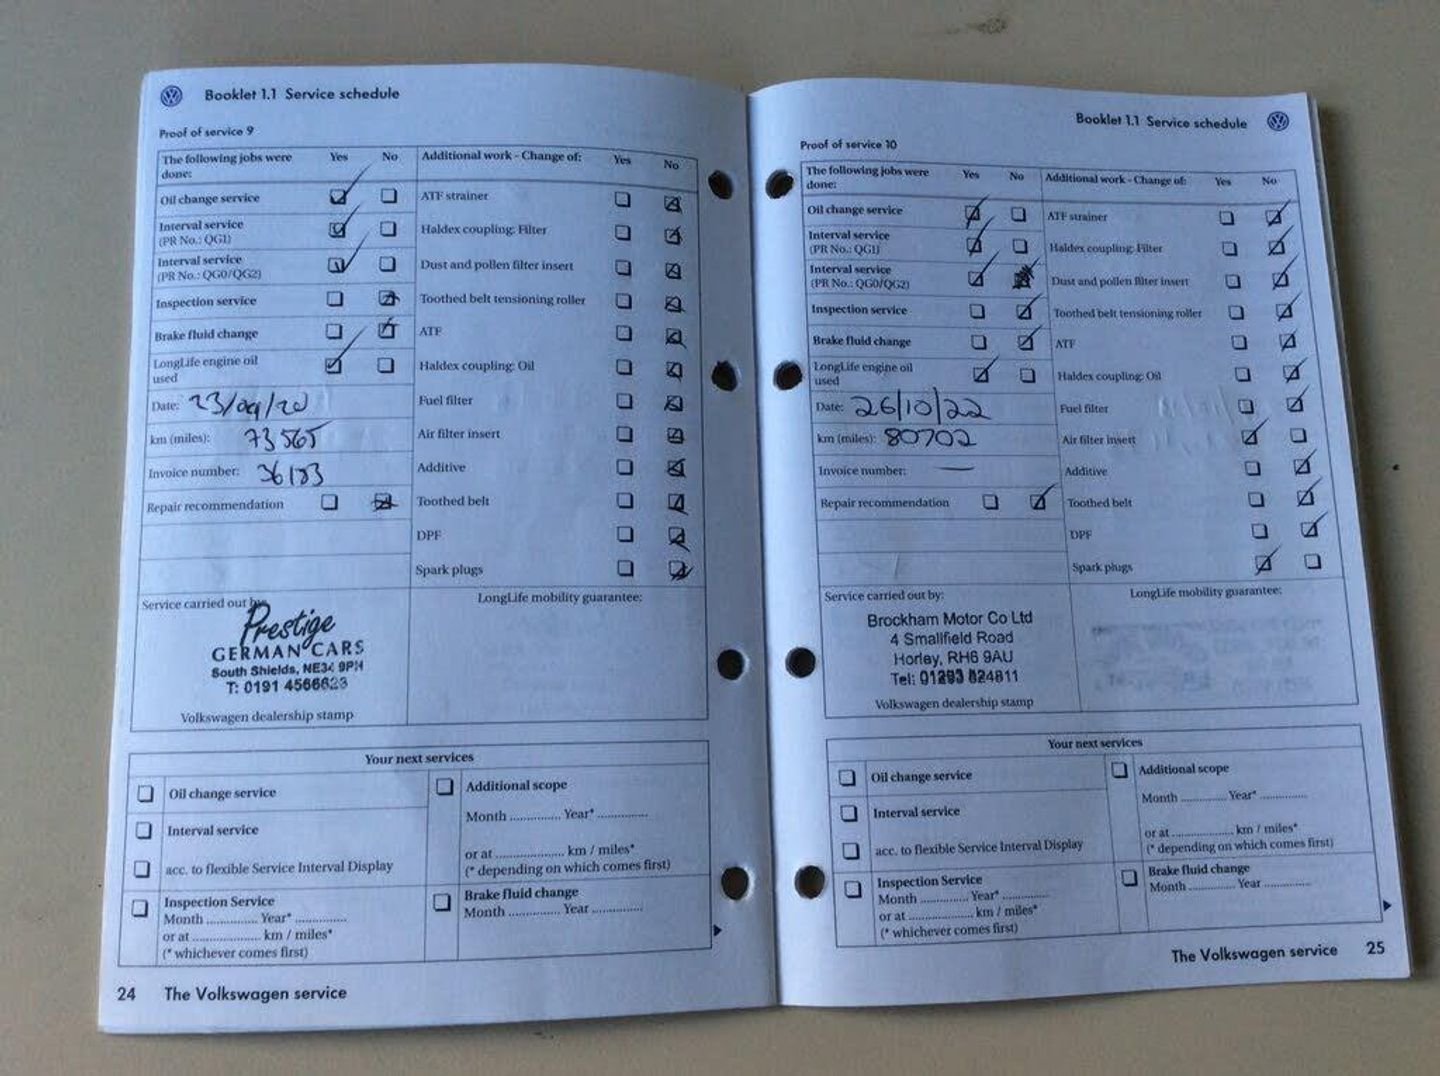 Booklet 1.1 Service schedule
Proof of service 9
The following jobs were done: Yes No
Oil change service
Interval service
(PR No.: QG1)
Interval service
(PR No.: QG0/QG2)
Inspection service
Brake fluid change
LongLife engine oil
used
Date: 23/09/20
km (miles): 73565
Invoice number: 36183
Repair recommendation
Additional work - Change of: Yes No
ATF strainer
Haldex coupling: Filter
Dust and pollen filter insert
Toothed belt tensioning roller
ATF
Haldex coupling: Oil
Fuel filter
Air filter insert
Additive
Toothed belt
DPF
Spark plugs
Service carried out by:
Prestige
GERMAN CARS
South Shields, NE34 9PH
T: 0191 4566623
Volkswagen dealership stamp
LongLife mobility guarantee:
Your next services
Oil change service
Interval service
acc. to flexible Service Interval Display
Inspection Service
Month .............. Year* ..............
or at ................... km / miles*
(* whichever comes first)
Additional scope
Month .............. Year* ..............
or at ................... km / miles*
(* depending on which comes first)
Brake fluid change
Month .............. Year ..............
24 The Volkswagen service
Booklet 1.1 Service schedule
Proof of service 10
The following jobs were done: Yes No
Oil change service
Interval service
(PR No.: QG1)
Interval service
(PR No.: QG0/QG2)
Inspection service
Brake fluid change
LongLife engine oil
used
Date: 26/10/22
km (miles): 80702
Invoice number: —
Repair recommendation
Additional work - Change of: Yes No
ATF strainer
Haldex coupling: Filter
Dust and pollen filter insert
Toothed belt tensioning roller
ATF
Haldex coupling: Oil
Fuel filter
Air filter insert
Additive
Toothed belt
DPF
Spark plugs
Service carried out by:
Brockham Motor Co Ltd
4 Smallfield Road
Horley, RH6 9AU
Tel: 01293 824811
Volkswagen dealership stamp
LongLife mobility guarantee:
Your next services
Oil change service
Interval service
acc. to flexible Service Interval Display
Inspection Service
Month .............. Year* ..............
or at ................... km / miles*
(* whichever comes first)
Additional scope
Month .............. Year* ..............
or at ................... km / miles*
(* depending on which comes first)
Brake fluid change
Month .............. Year ..............
The Volkswagen service 25